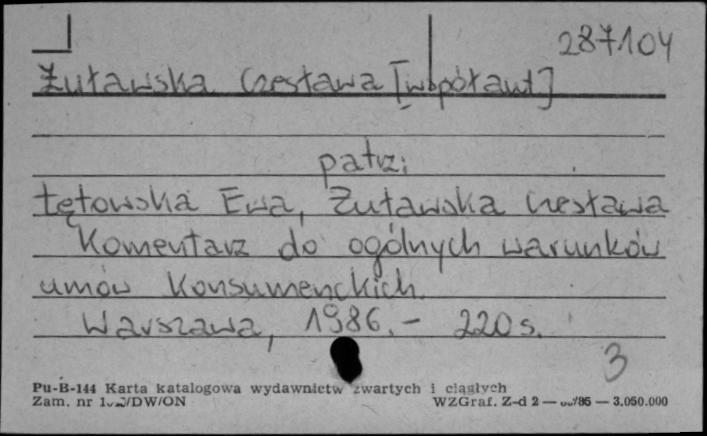 287104
Żuławska Czesława [współaut]
patrz:
Łętowska Ewa, Żuławska Czesława
Komentarz do ogólnych warunków
umów konsumenckich.
Warszawa, 1986. - 220 s.
3
Pu-B-144 Karta katalogowa wydawnictw zwartych i ciągłych
Zam. nr /DW/ON WZGraf. Z-d 2 — /85 — 3.050.000